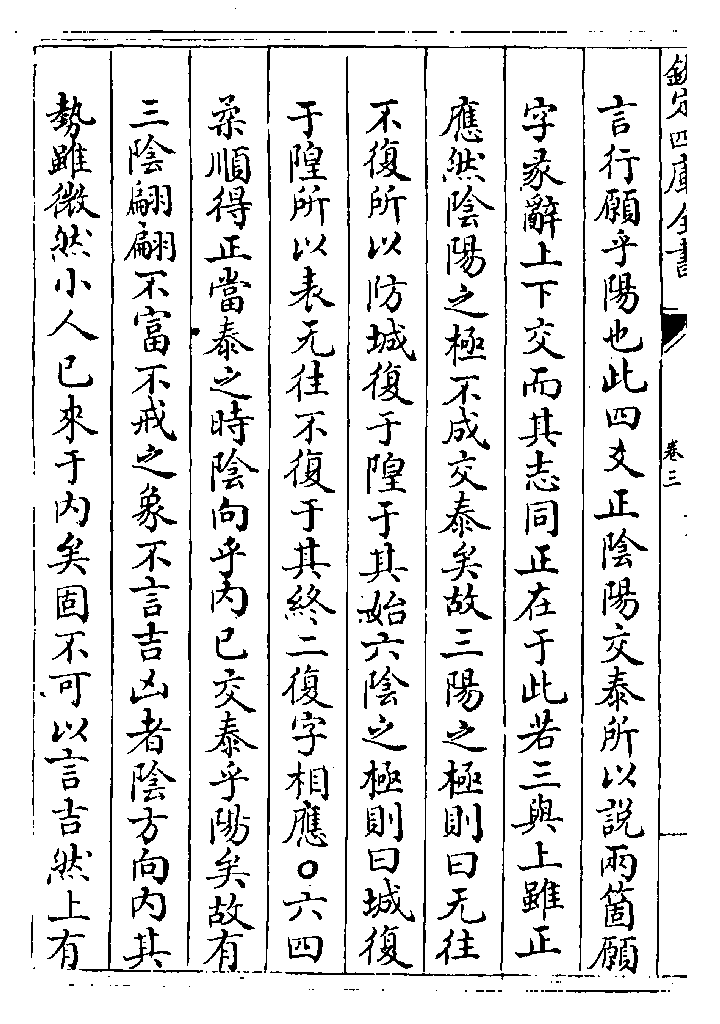 欽定四庫全書
卷三
言行願乎陽也此四爻正陰陽交泰所以說兩箇願
字彖辭上下交而其志同正在于此若三與上雖正
應然陰陽之極不成交泰矣故三陽之極則曰无往
不復所以防城復于隍于其始六陰之極則曰城復
于隍所以表无往不復于其終二復字相應○六四
柔順得正當泰之時陰向乎內已交泰乎陽矣故有
三陰翩翩不富不戒之象不言吉凶者陰方向內其
勢雖微然小人已來于內矣固不可以言吉然上有